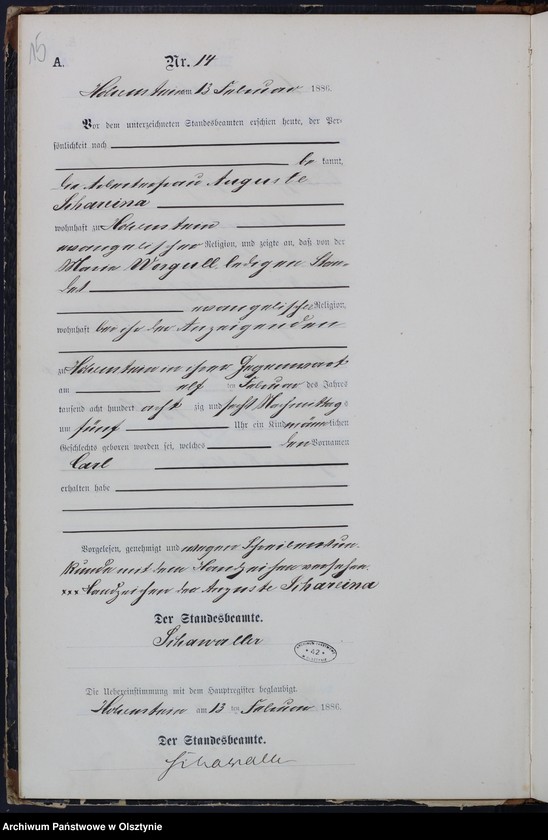 15
A.
Nr. 14
Hohenstein am 13 Februar 1886.
Vor dem unterzeichneten Standesbeamten erschien heute, der Per-
sönlichkeit nach
be kannt,
die Arbeiterfrau Auguste
Schareina
wohnhaft zu Hohenstein
evangelischer Religion, und zeigte an, daß von der
Marie Worgull, ledigen Stan-
des
evangelischer Religion,
wohnhaft bei der Anzeigenden
zu Hohenstein in ihrer Gegenwart
am elf ten Februar des Jahres
tausend acht hundert acht zig und sechs Nachmittags
um fünf Uhr ein Kind männlichen
Geschlechts geboren worden sei, welches den Vornamen
Carl
erhalten habe
Vorgelesen, genehmigt und wegen Schreibensun-
kunde mit dem Handzeichen versehen.
xxx Handzeichen der Auguste Schareina
Der Standesbeamte.
Schawaller
42
Die Uebereinstimmung mit dem Hauptregister beglaubigt.
Hohenstein am 13 ten Februar 1886.
Der Standesbeamte.
Schawaller
Archiwum Państwowe w Olsztynie